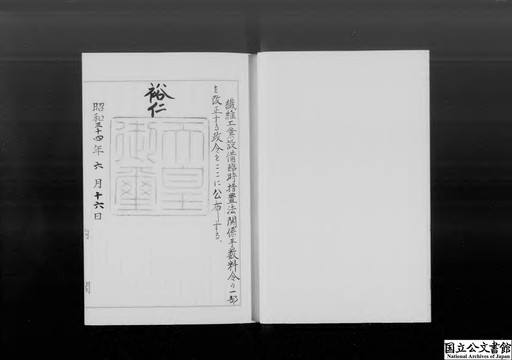 繊維工業設備臨時措置法関係手数料令の一部
を改正する政令をここに公布する。
裕仁
天皇
御璽
昭和三十四年六月十六日
国立公文書館
National Archives of Japan